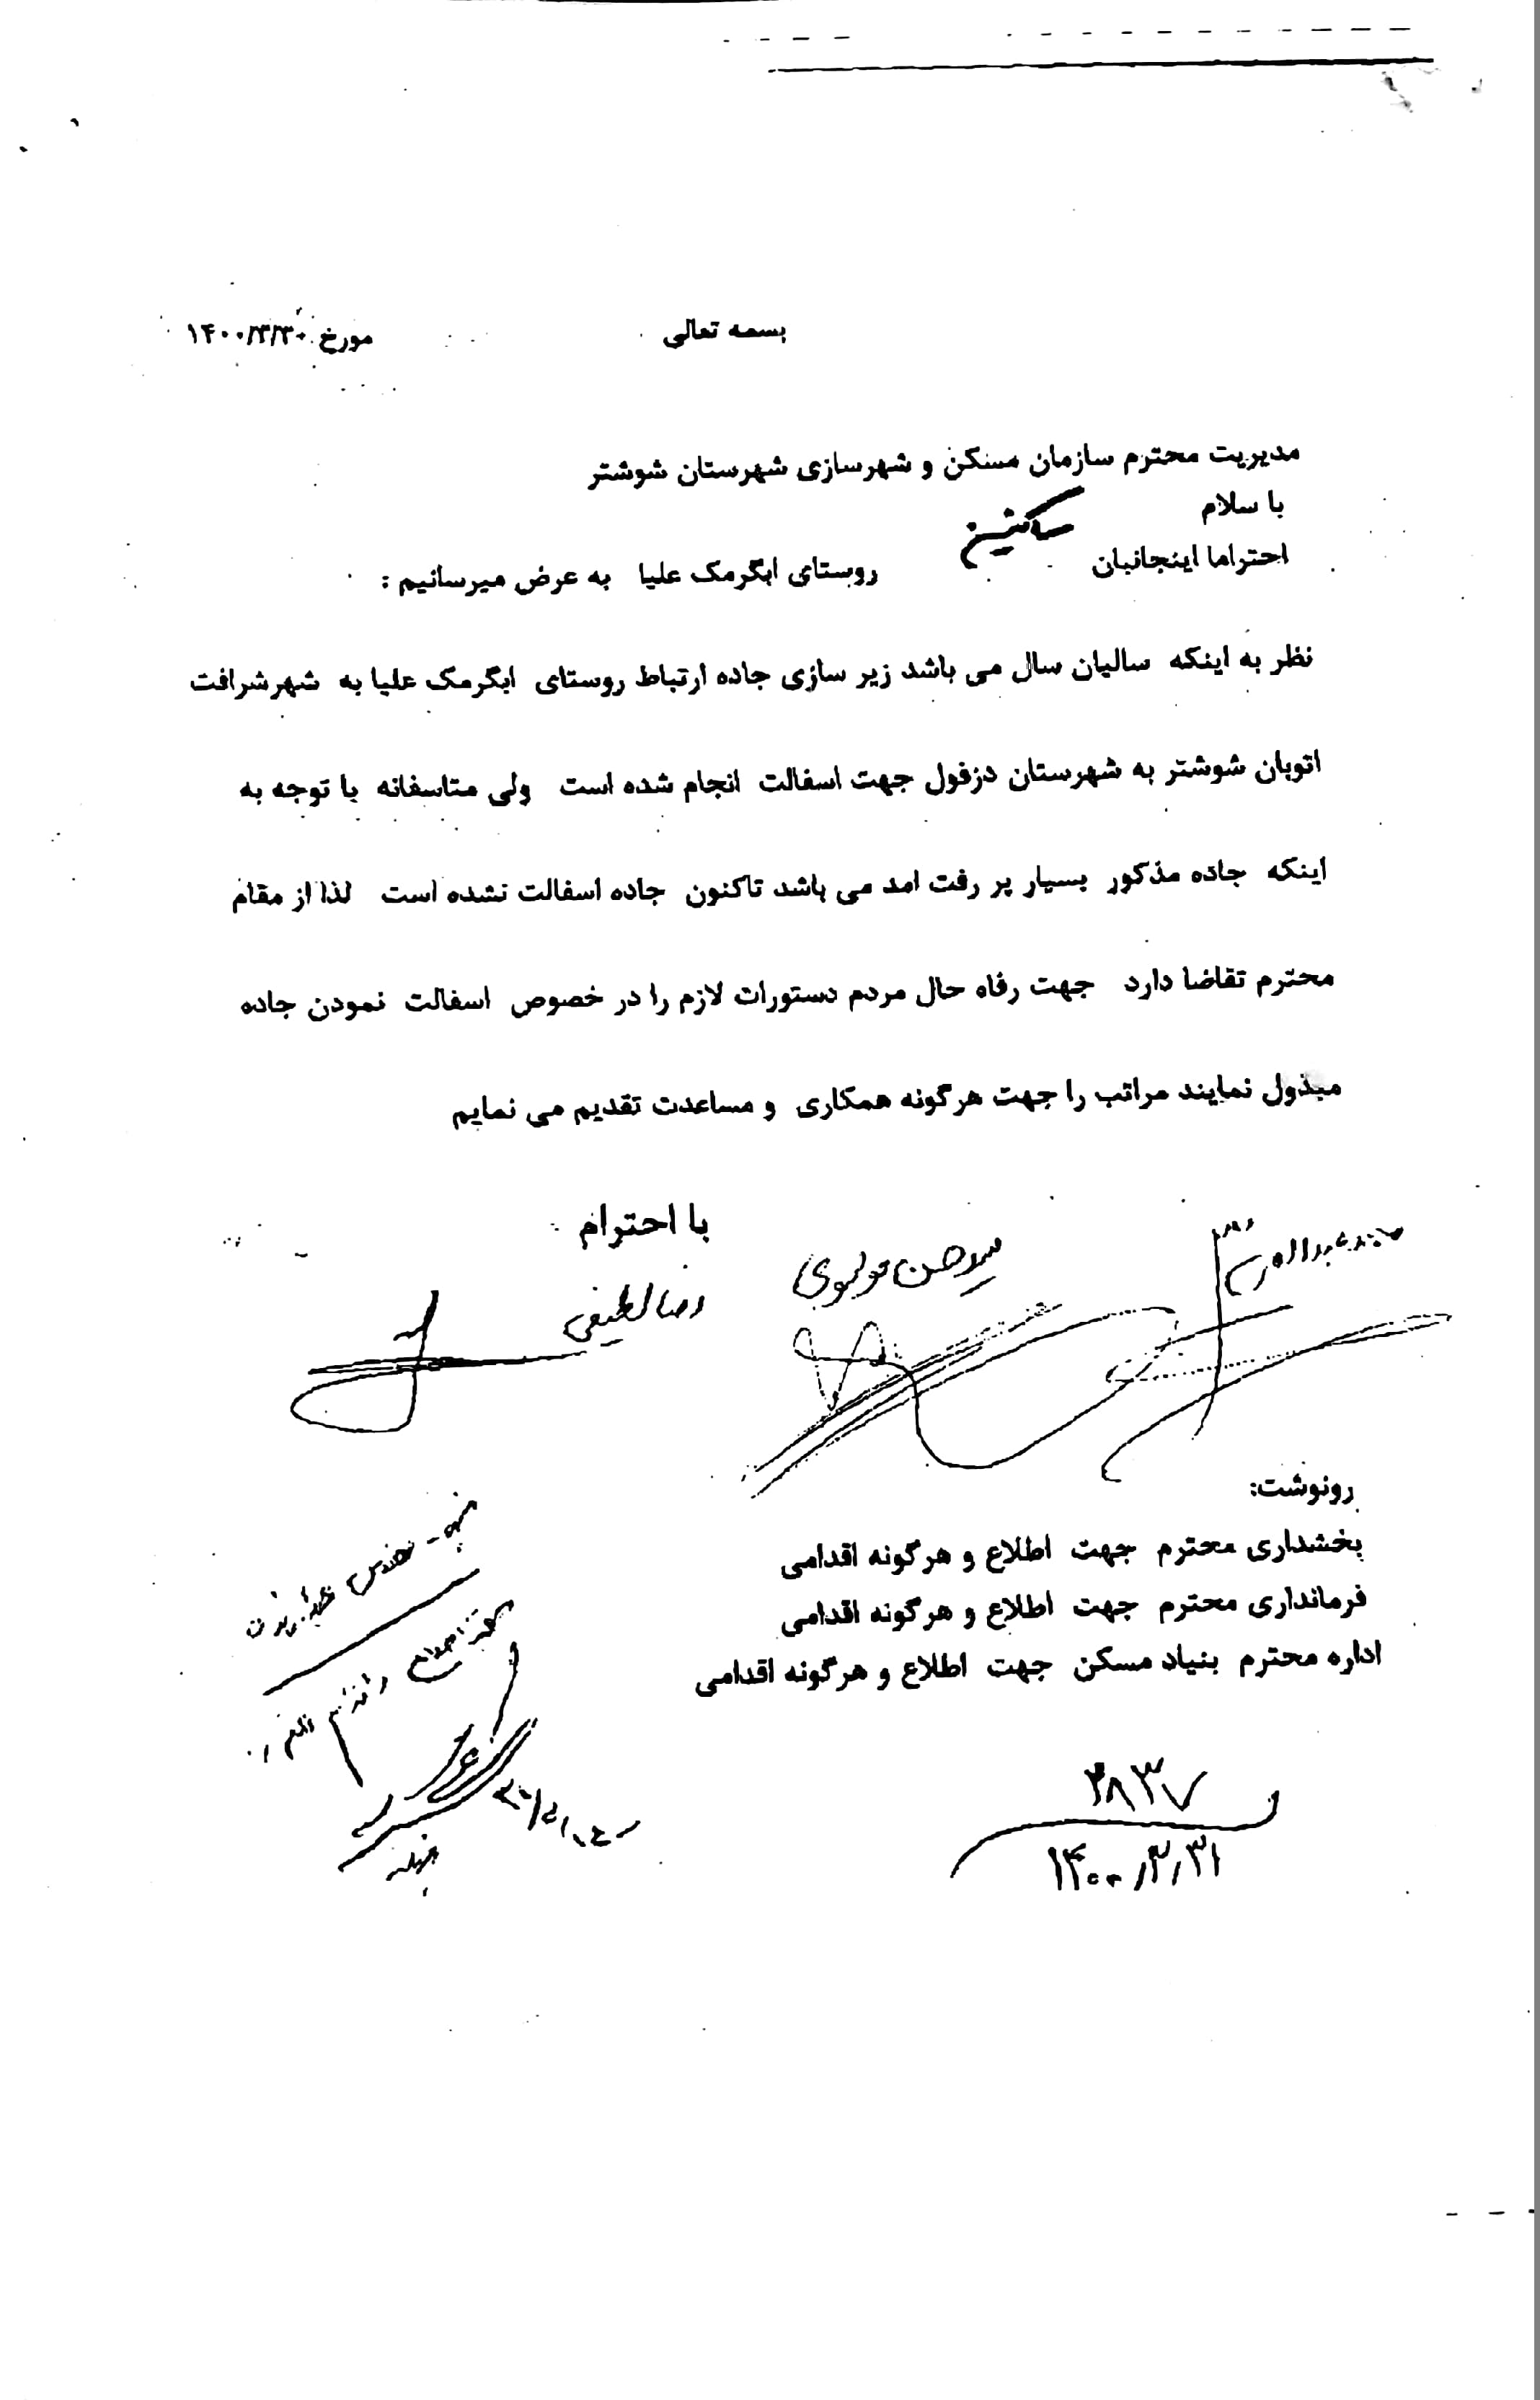 بسمه تعالی
مورخ ۱۴۰۰/۳/۳۰
مدیریت محترم سازمان مسکن و شهرسازی شهرستان شوشتر
با سلام
احتراما اینجانبان ساکنین روستای ابگرمک علیا به عرض میرسانیم :
نظر به اینکه سالیان سال می باشد زیر سازی جاده ارتباط روستای ابگرمک علیا به شهرشرافت
اتوبان شوشتر به شهرستان دزفول جهت اسفالت انجام شده است ولی متاسفانه با توجه به
اینکه جاده مذکور بسیار پر رفت امد می باشد تاکنون جاده اسفالت نشده است لذا از مقام
محترم تقاضا دارد جهت رفاه حال مردم دستورات لازم را در خصوص اسفالت نمودن جاده
مبذول نمایند مراتب را جهت هرگونه همکاری و مساعدت تقدیم می نمایم
با احترام
رضا لطیفی
رونوشت:
بخشداری محترم جهت اطلاع و هرگونه اقدامی
فرمانداری محترم جهت اطلاع و هرگونه اقدامی
اداره محترم بنیاد مسکن جهت اطلاع و هرگونه اقدامی
۲۸۳۷
۱۴۰۰/۳/۳۱